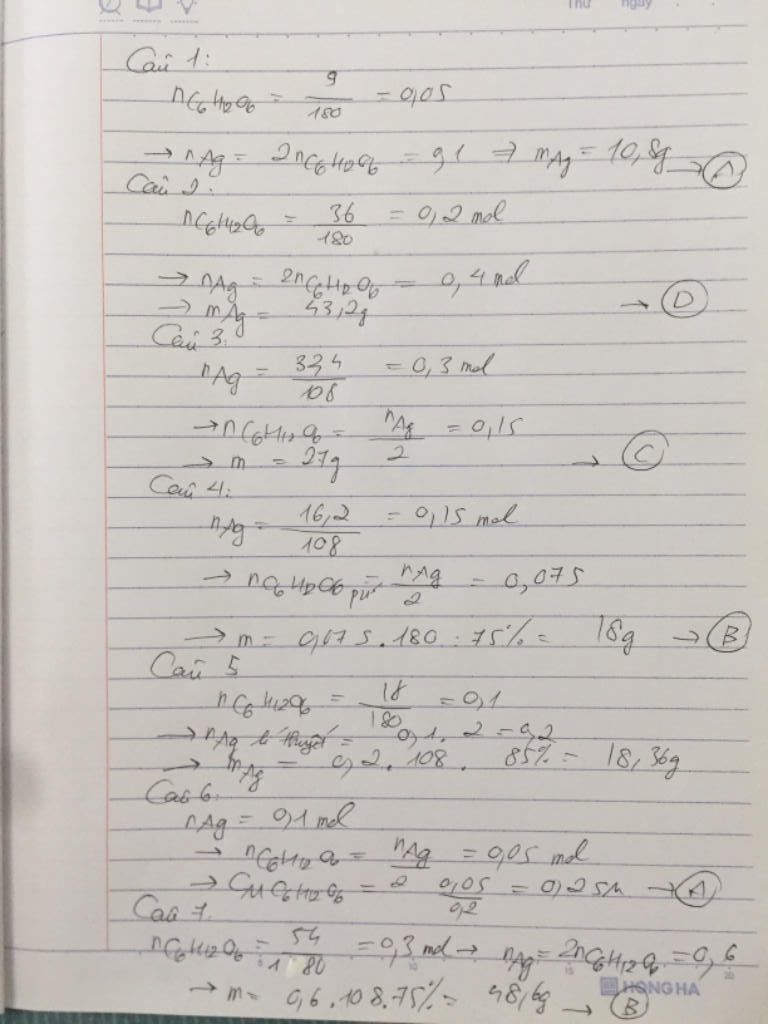 Thứ ngày
Câu 1:
nC6H12O6 = 9/180 = 0,05
→ nAg = 2nC6H12O6 = 0,1 ⇒ mAg = 10,8g → A
Câu 2:
nC6H12O6 = 36/180 = 0,2 mol
→ nAg = 2nC6H12O6 = 0,4 mol
→ mAg = 43,2g → D
Câu 3:
nAg = 32,4/108 = 0,3 mol
→ nC6H12O6 = nAg/2 = 0,15
→ m = 27g → C
Câu 4:
nAg = 16,2/108 = 0,15 mol
→ nC6H12O6 pứ = nAg/2 = 0,075
→ m = 0,075 . 180 : 75% = 18g → B
Câu 5
nC6H12O6 = 18/180 = 0,1
→ nAg lí thuyết = 0,1 . 2 = 0,2
→ mAg = 0,2 . 108 . 85% = 18,36g
Câu 6:
nAg = 0,1 mol
→ nC6H12O6 = nAg/2 = 0,05 mol
→ CM C6H12O6 = 0,05/0,2 = 0,25M → A
Câu 7.
nC6H12O6 = 54/180 = 0,3 mol → nAg = 2nC6H12O6 = 0,6
→ m = 0,6 . 108 . 75% = 48,6g → B
HONG HA